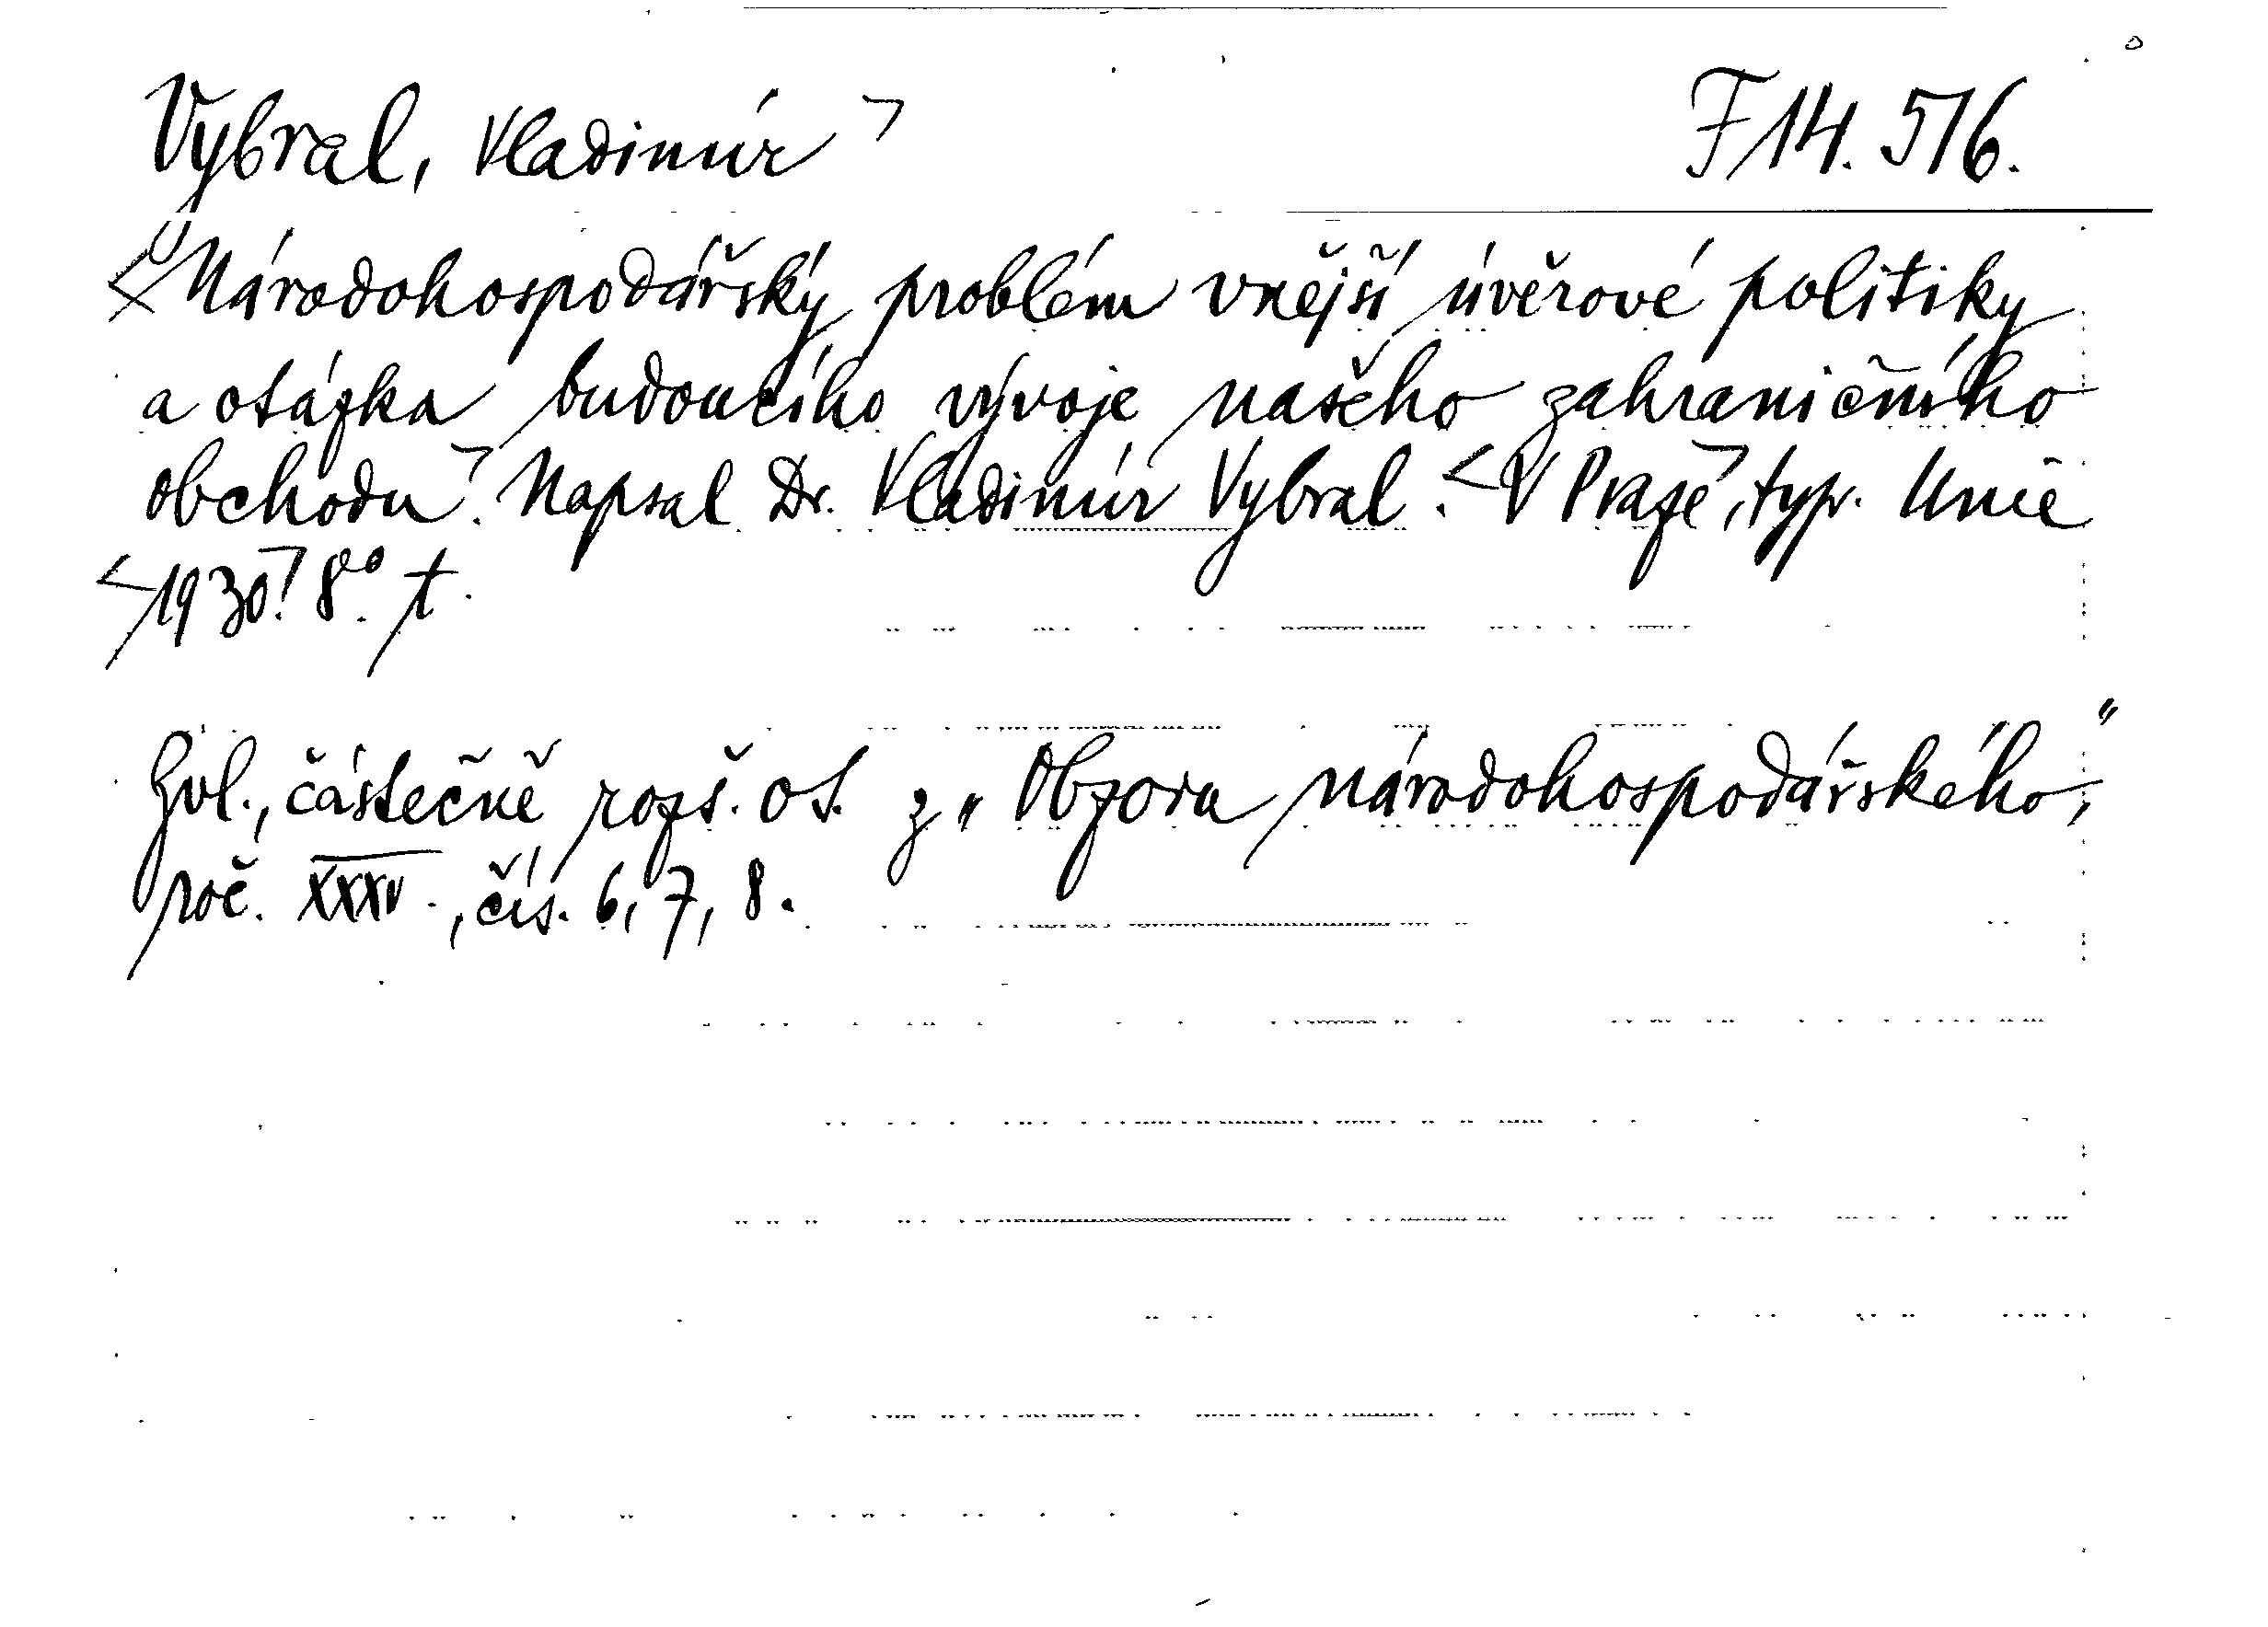 Vybral, Vladimír ㄱ F 14. 516.
< Národohospodářský problém vnější úvěrové politiky
a otázka budoucího vývoje našeho zahraničního
obchodu ㄱ. Napsal Dr. Vladimír Vybral. < V Praze ㄱ, typ. Unie
< 1930 ㄱ. 8°. t.
Zvl., částečně rozš. ot. z „Obzoru národohospodářského",
roč. XXXV., čís. 6, 7, 8.